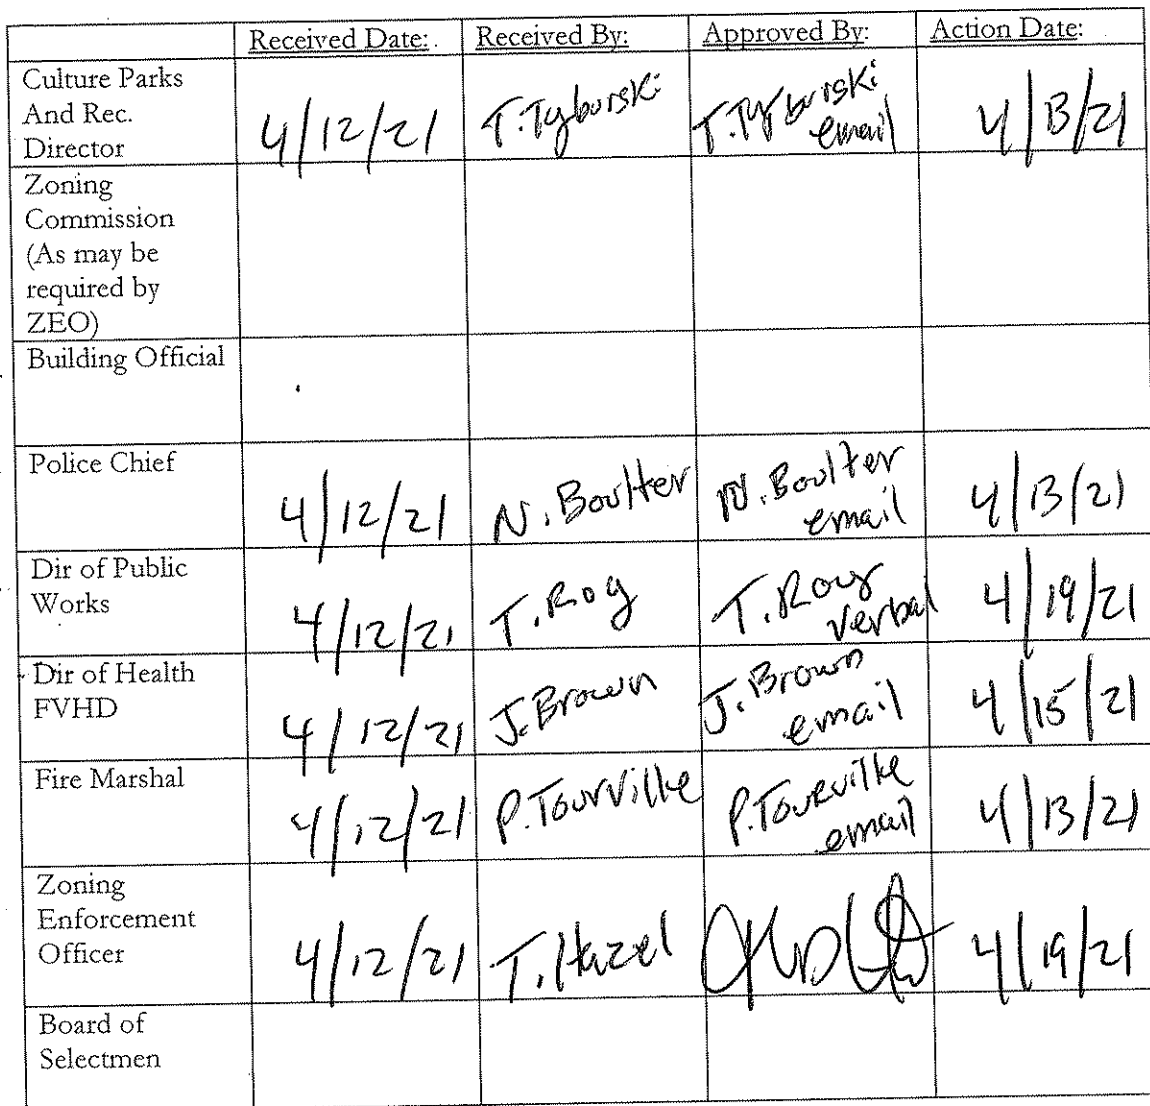 Received Date: Received By: Approved By: Action Date:
Culture Parks
And Rec.
Director
4/12/21 T. Tyburski T. Tyburski
email 4/13/21
Zoning
Commission
(As may be
required by
ZEO)
Building Official
Police Chief
4/12/21 N. Boulter N. Boulter
email 4/13/21
Dir of Public
Works
4/12/21 T. Roy T. Roy
verbal 4/19/21
Dir of Health
FVHD
4/12/21 J. Brown J. Brown
email 4/15/21
Fire Marshal
4/12/21 P. Tourville P. Tourville
email 4/13/21
Zoning
Enforcement
Officer
4/12/21 T. Hazel 4/19/21
Board of
Selectmen